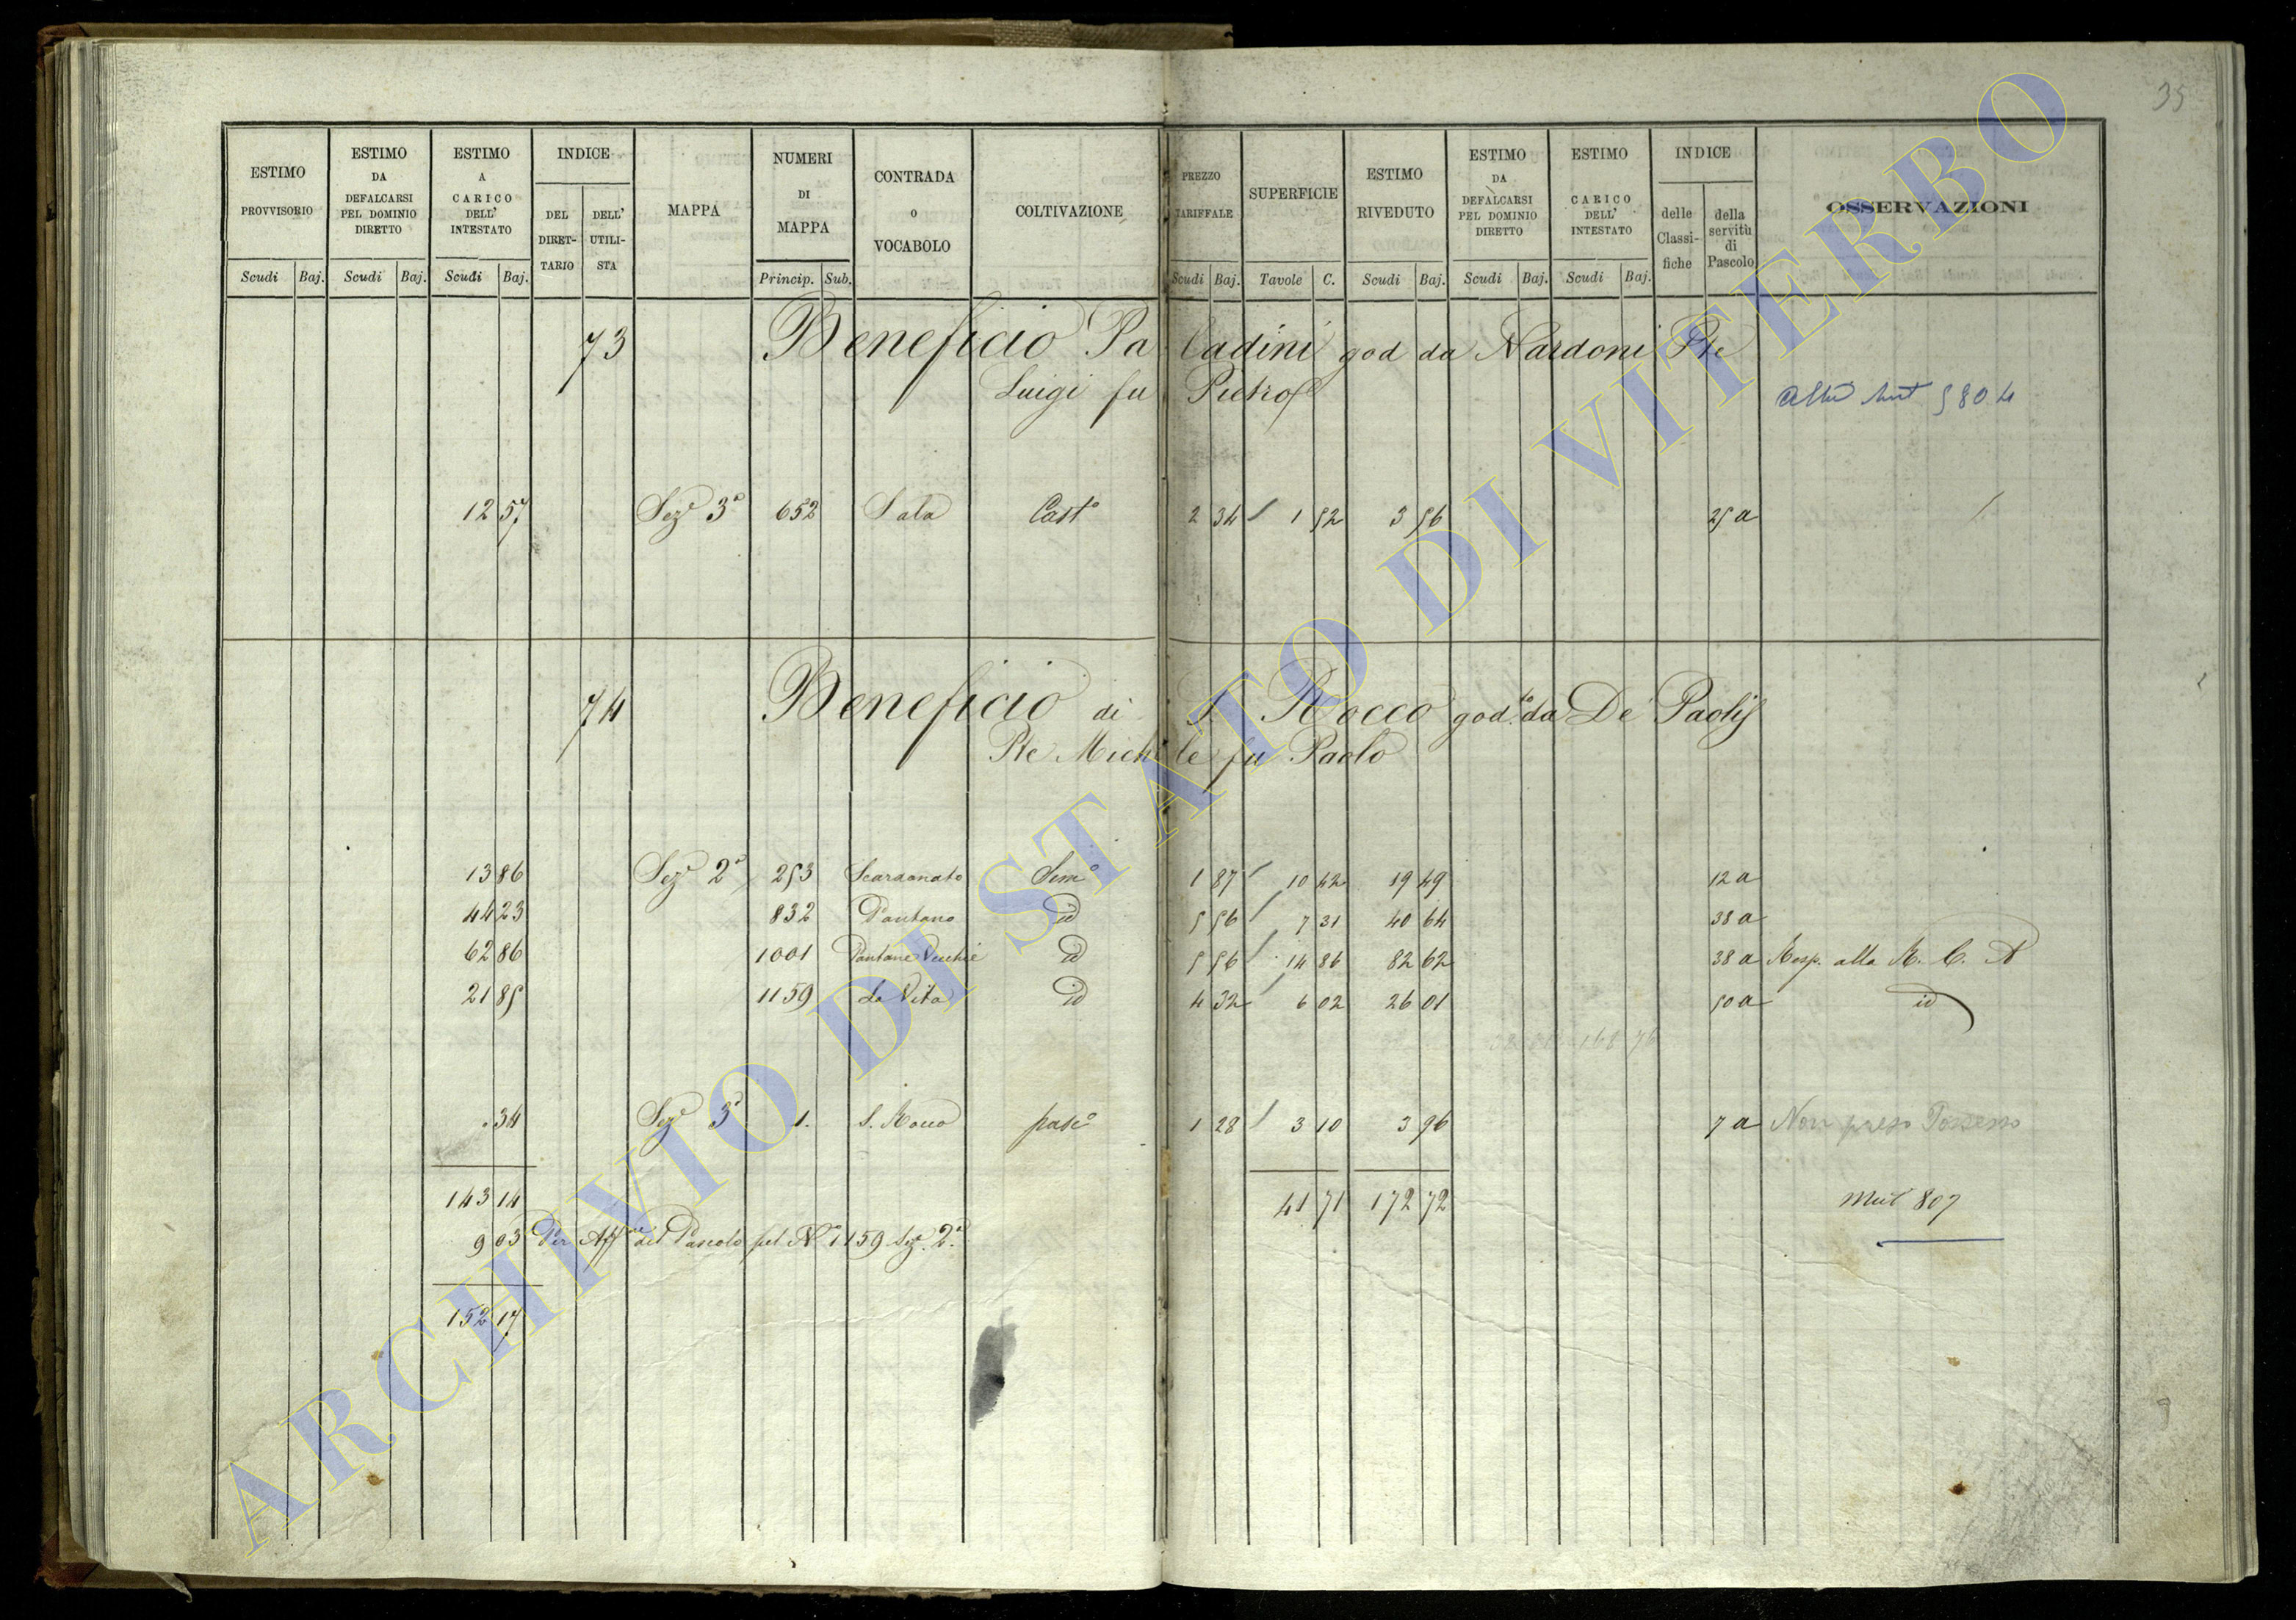 35
ESTIMO PROVVISORIO Scudi Baj.
ESTIMO DA DEFALCARSI PEL DOMINIO DIRETTO Scudi Baj.
ESTIMO A CARICO DELL' INTESTATO Scudi Baj.
INDICE DEL DIRET-TARIO DELL' UTILI-STA
MAPPA
NUMERI DI MAPPA Princip. Sub.
CONTRADA O VOCABOLO
COLTIVAZIONE
PREZZO TARIFFALE Scudi Baj.
SUPERFICIE Tavole C.
ESTIMO RIVEDUTO Scudi Baj.
ESTIMO DA DEFALCARSI PEL DOMINIO DIRETTO Scudi Baj.
ESTIMO CARICO DELL' INTESTATO Scudi Baj.
INDICE delle Classi-fiche della servitù di Pascolo
OSSERVAZIONI
73 Beneficio Paladini god da Nardoni Pte
Luigi fu Pietro
580 4
12 57 Sez.e 3a 652 Sala Casto 2 34 1 52 3 56 25 a
74 Beneficio di S. Rocco god.to da De Paolis
Pte Michele fu Paolo
13 86 Sez.e 2a 253 Scardonato Semo 1 87 10 42 19 49 12 a
44 23 832 Pantano id 5 56 7 31 40 64 38 a
62 86 1001 Pantane Vecchie id 5 56 14 86 82 62 38 a Resp. alla R. C. A
21 85 1159 La Vita id 4 32 6 02 26 01 50 a id
34 Sez.e 3a 1. S. Rocco pasco 1 28 3 10 3 96 7 a Non preso Possesso
143 14 41 71 172 72 Mut 807
9 03 Per Aff.ne del Pascolo pel No 1159 Sez.e 2a
152 17
ARCHIVIO DI STATO DI VITERBO